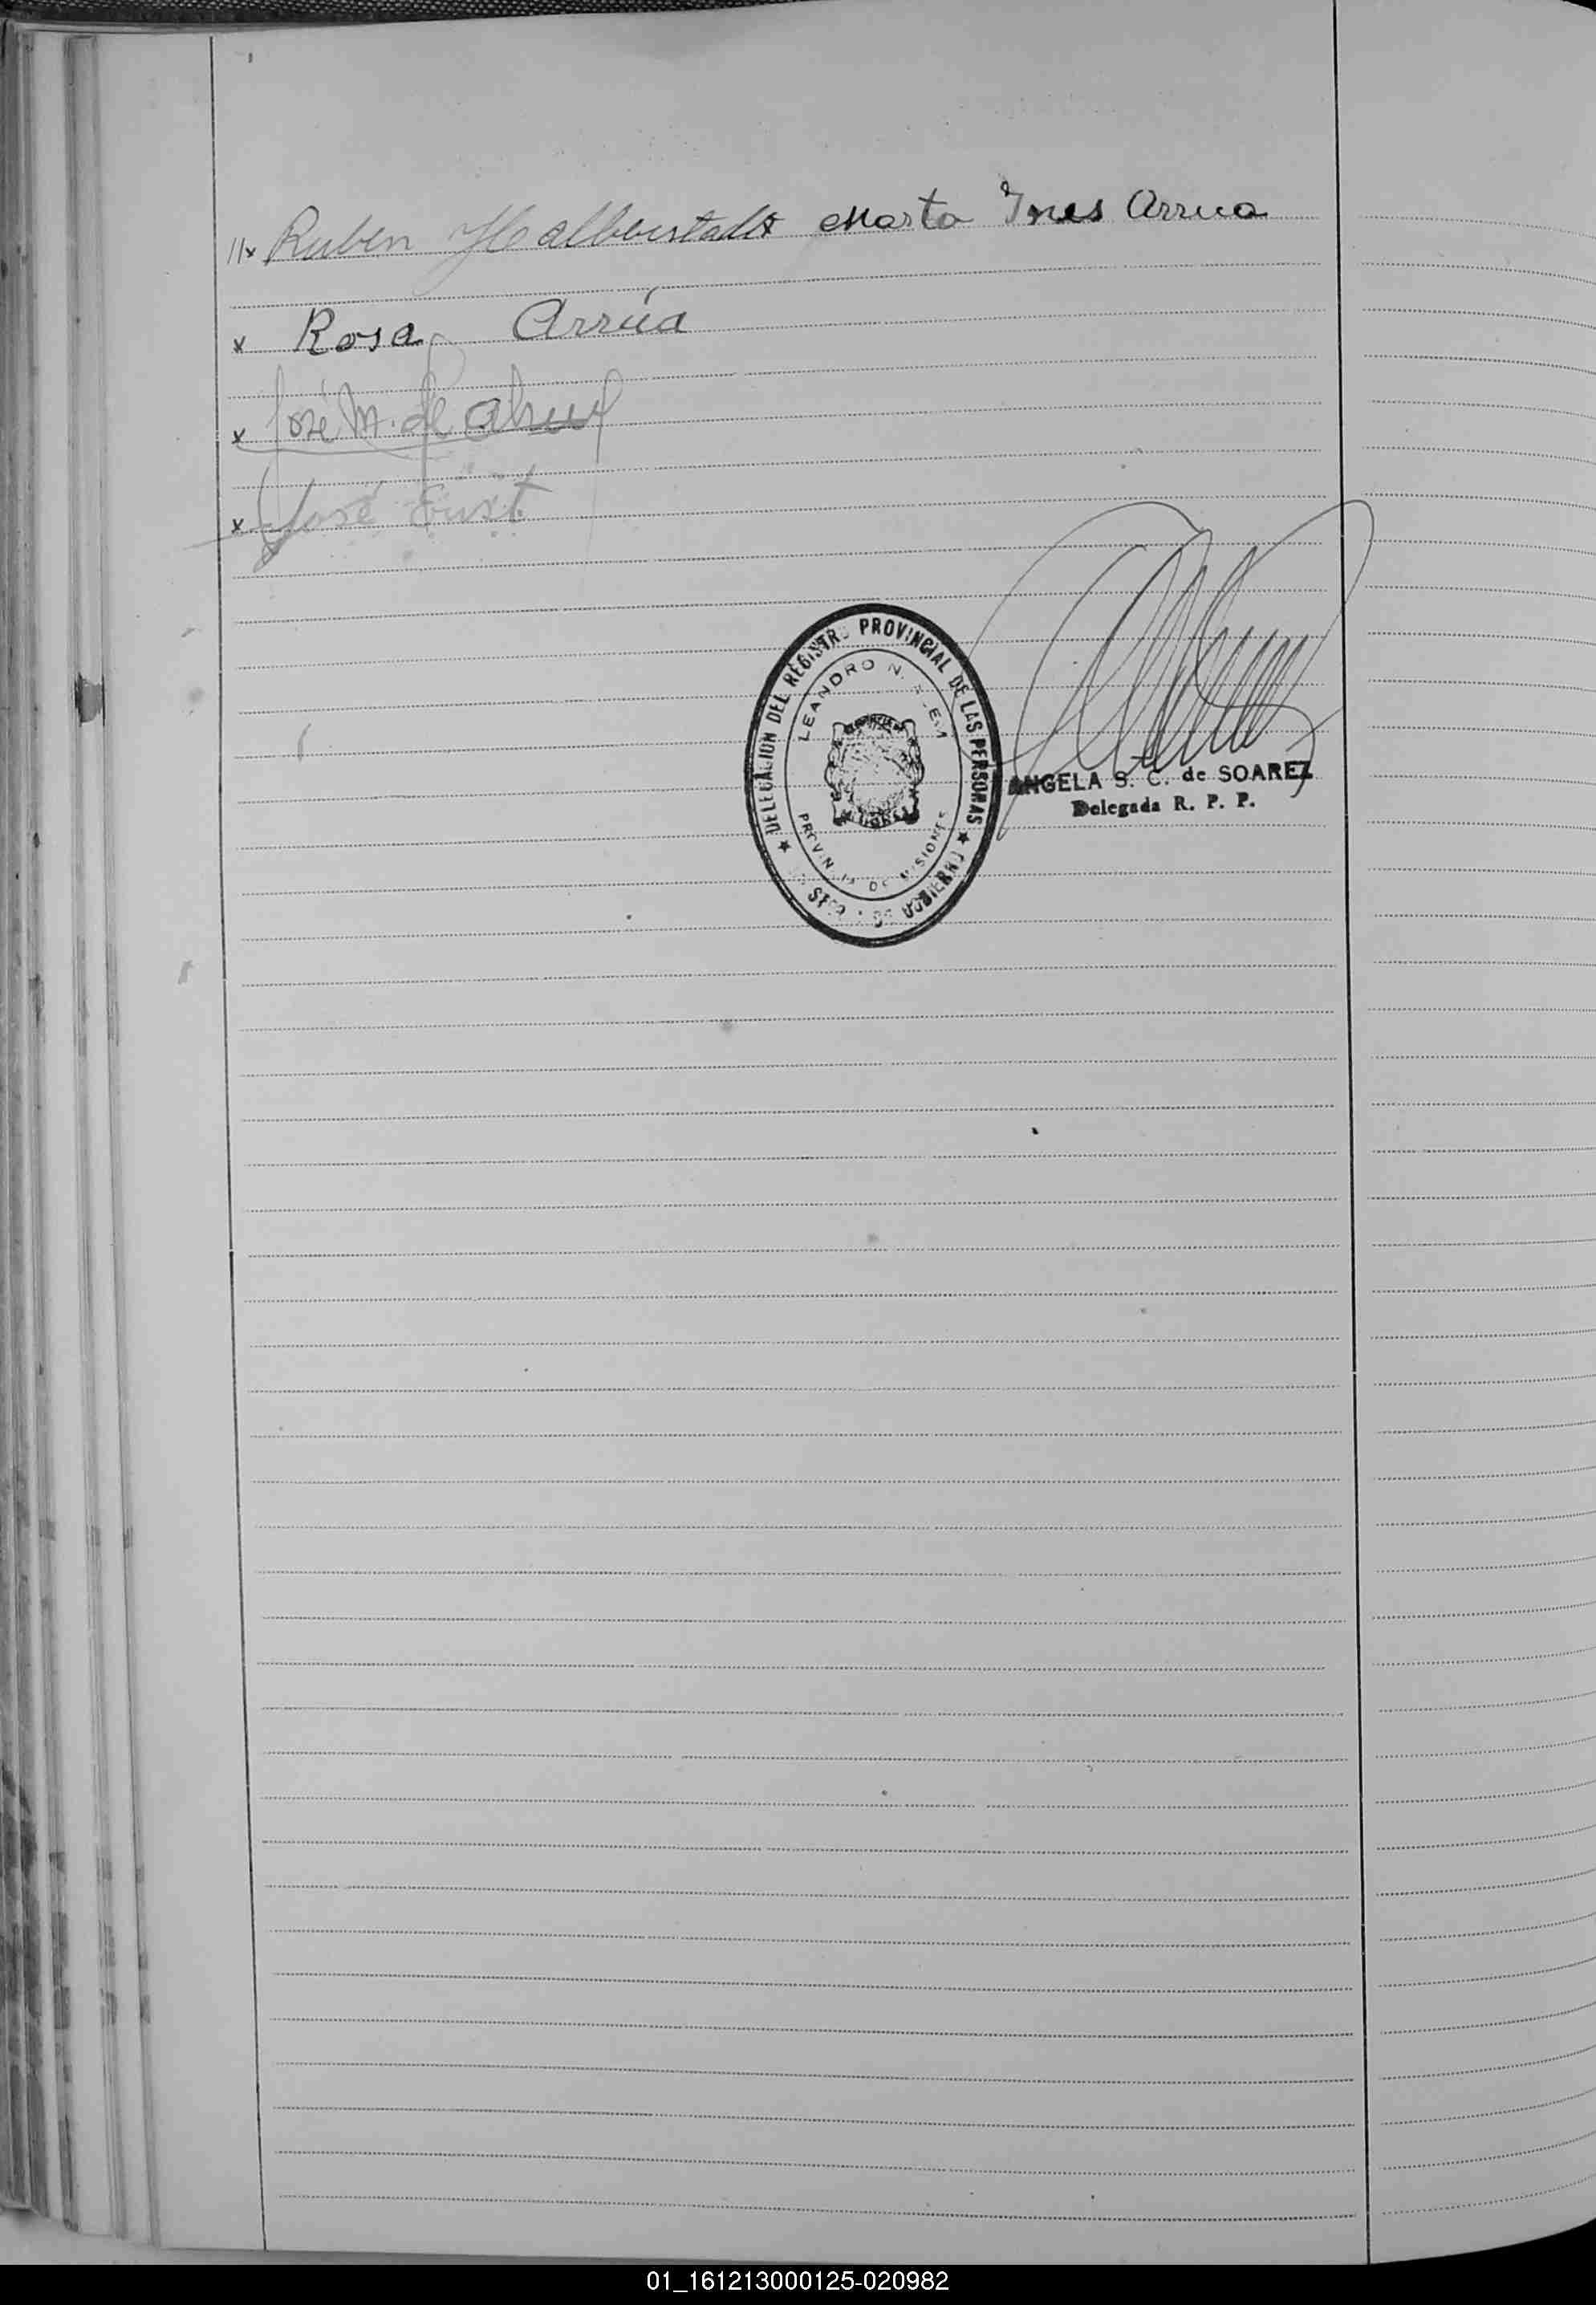 //x Ruben Halberstadt Marta Ines Arrua
x Rosa Arrúa
x José M. de
x José
DELEGACION DEL REGISTRO PROVINCIAL DE LAS PERSONAS
LEANDRO N. ALEM
PROVINCIA DE MISIONES
ANGELA S. C. de SOAREZ
Delegada R. P. P.
01_161213000125-020982